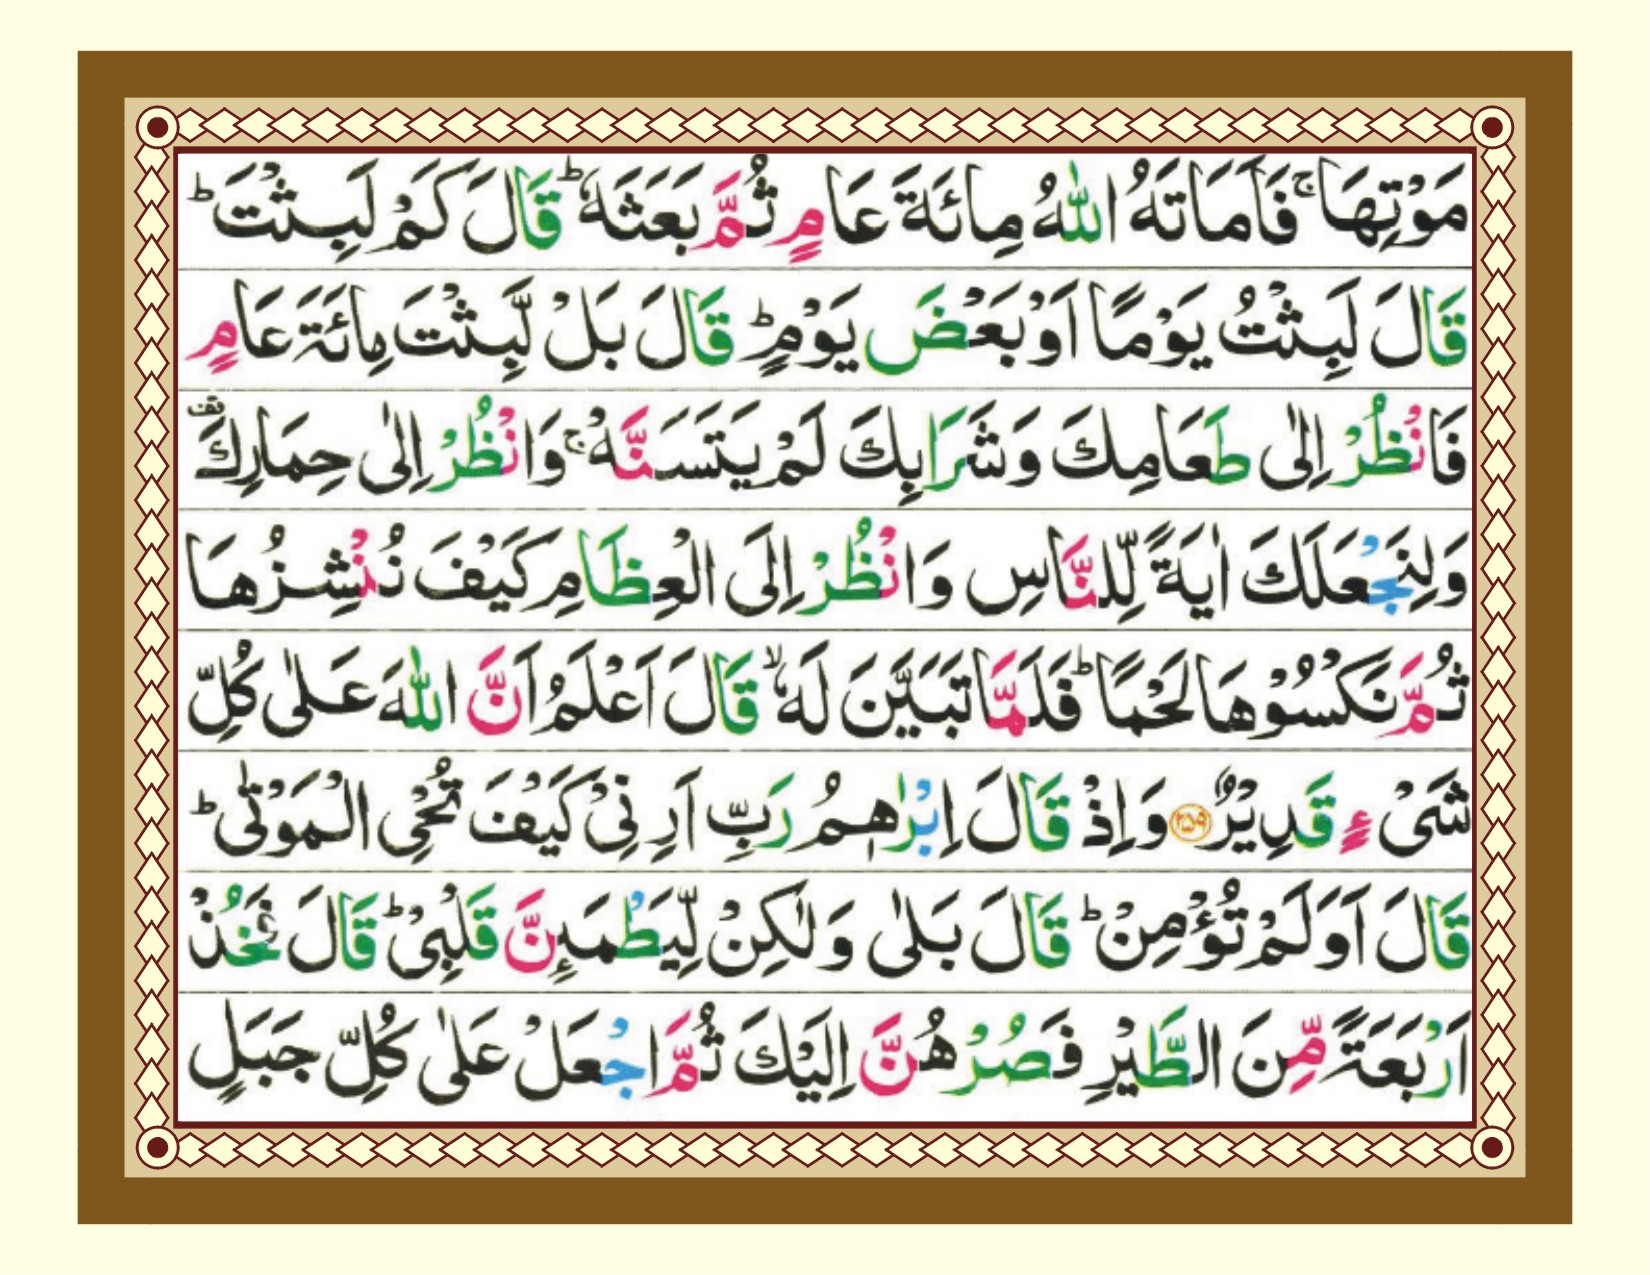 مَوْتِهَا ۚ فَاَمَاتَهُ اللّٰهُ مِائَةَ عَامٍ ثُمَّ بَعَثَهٗ ؕ قَالَ كَمْ لَبِثْتَ ؕ
قَالَ لَبِثْتُ يَوْمًا اَوْ بَعْضَ يَوْمٍ ؕ قَالَ بَلْ لَّبِثْتَ مِائَةَ عَامٍ
فَانْظُرْ اِلٰى طَعَامِكَ وَشَرَابِكَ لَمْ يَتَسَنَّهْ ۚ وَانْظُرْ اِلٰى حِمَارِكَ قف
وَلِنَجْعَلَكَ اٰيَةً لِّلنَّاسِ وَانْظُرْ اِلَى الْعِظَامِ كَيْفَ نُنْشِزُهَا
ثُمَّ نَكْسُوْهَا لَحْمًا ؕ فَلَمَّا تَبَيَّنَ لَهٗ ۙ قَالَ اَعْلَمُ اَنَّ اللّٰهَ عَلٰى كُلِّ
شَىْءٍ قَدِيْرٌ ﴿۲۵۹﴾ وَاِذْ قَالَ اِبْرٰهٖمُ رَبِّ اَرِنِىْ كَيْفَ تُحْىِ الْمَوْتٰى ؕ
قَالَ اَوَلَمْ تُؤْمِنْ ؕ قَالَ بَلٰى وَلٰكِنْ لِّيَطْمَئِنَّ قَلْبِىْ ؕ قَالَ فَخُذْ
اَرْبَعَةً مِّنَ الطَّيْرِ فَصُرْهُنَّ اِلَيْكَ ثُمَّ اجْعَلْ عَلٰى كُلِّ جَبَلٍ